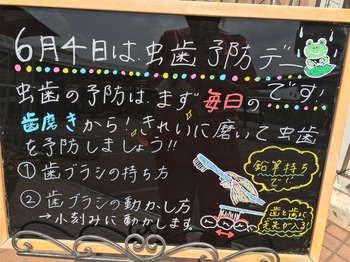 6月4日は、虫歯予防デー
です!
虫歯の予防は、まず毎日の
歯磨きから!きれいに磨いて虫歯
を予防しましょう!!
① 歯ブラシの持ち方
鉛筆持ち
で!
② 歯ブラシの動かし方
→小刻みに動かします。
歯と歯に
毛先が入る!